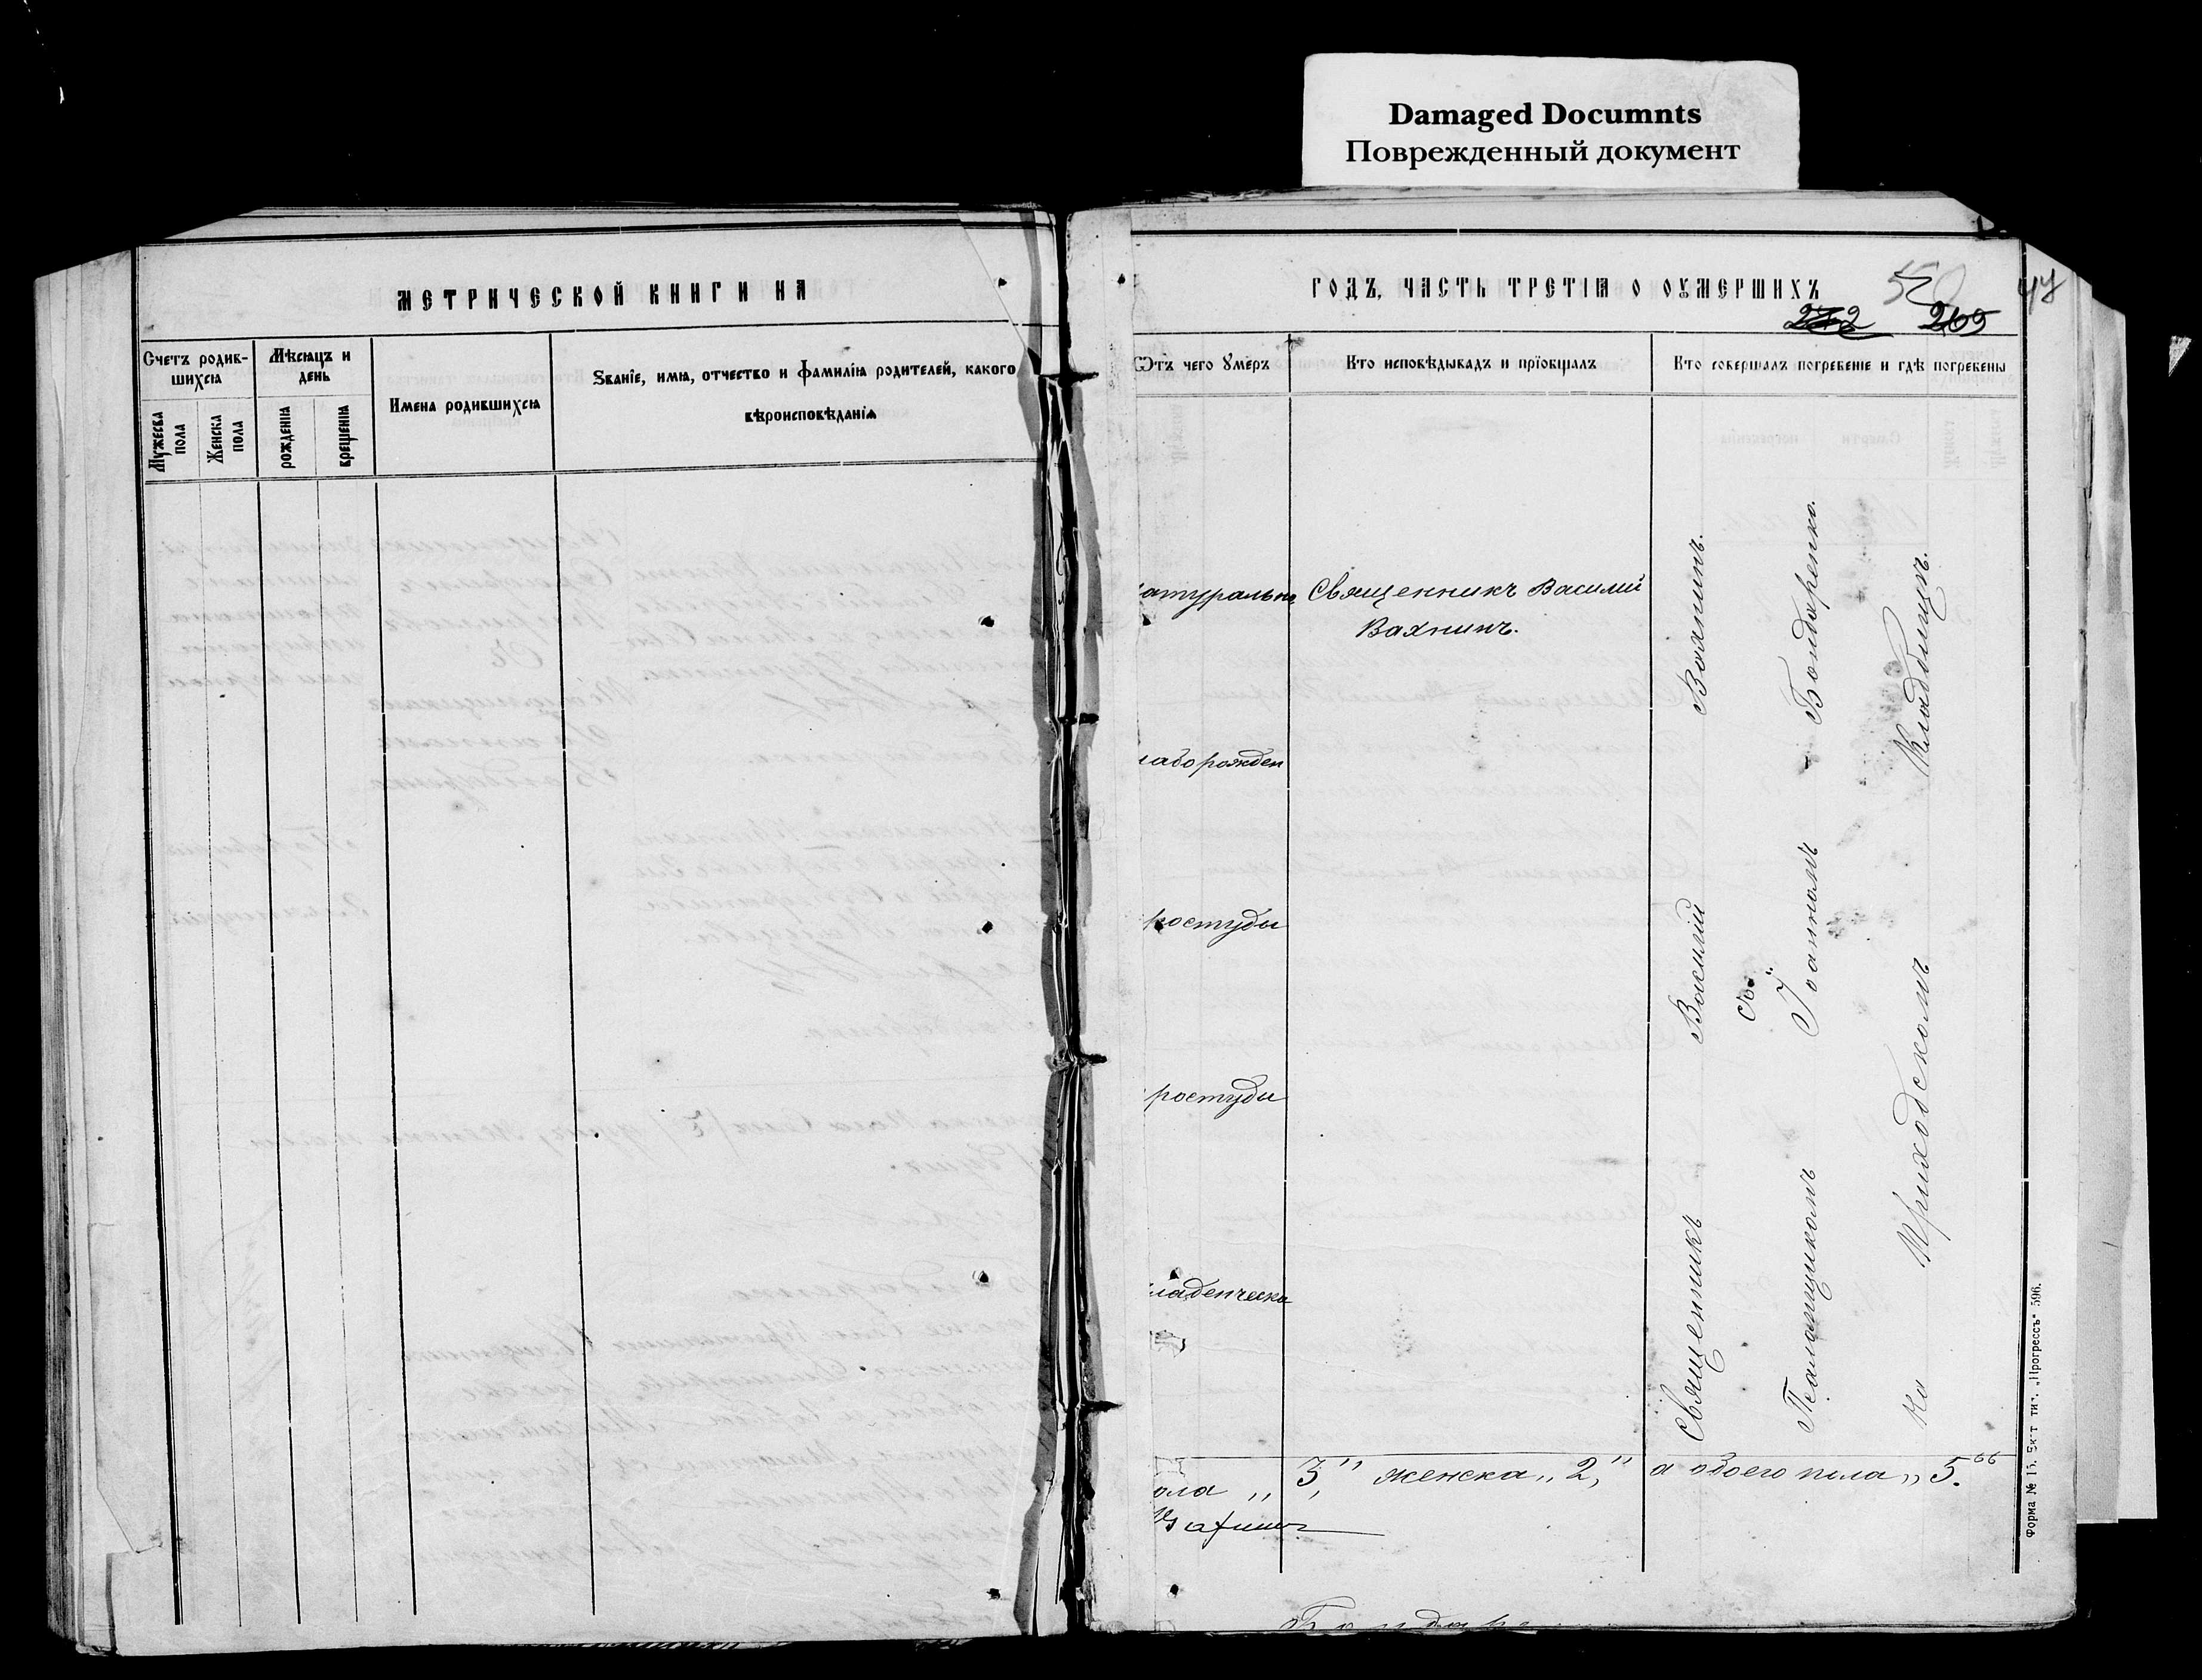 Damaged Documnts
Поврежденный документ
МЕТРИЧЕСКОЙ КНИГИ НА
Счетъ родив-
шихся
Мѣсяцъ и
день
Имена родившихся
Званіе, имя, отчество и фамилія родителей, какого
вѣроисповѣданія
Мужеска
пола
Женска
пола
рожденія
крещенія
ГОДЪ, ЧАСТЬ ТРЕТІЯ О ОУМЕРШИХЪ
50
47
272
265
Отъ чего умеръ
Кто исповѣдывалъ и пріобщалъ
Кто совершалъ погребеніе и гдѣ погребены
атурально
Священникъ Василій
Вахнинъ.
лаборожден
ростуды
ростуды
ладенческа
Священникъ Василій Вахнинъ.
съ
Псаломщикомъ Іоанномъ Бондаренко.
На Приходскомъ Кладбищѣ.
ола „ 3," женска „ 2," а обоего пола „ 5."
Вахнинъ
Форма № 15. Ек-т тип. „Прогрессъ" 596.